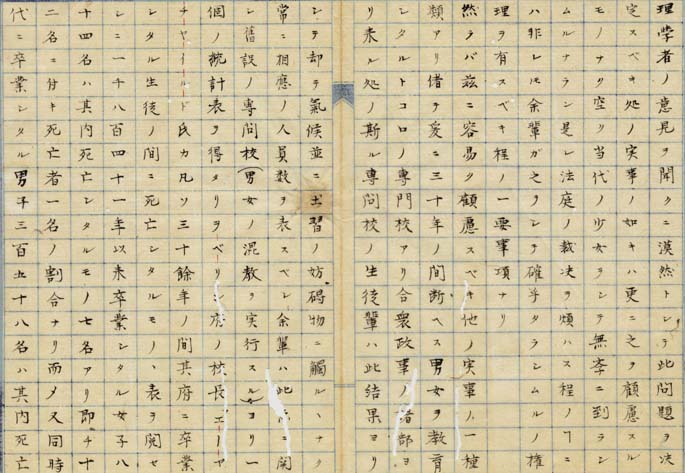 理学者ノ意見ヲ聞クニ漠然トシテ此問題ヲ決
定スベキ処ノ実事ノ如キハ更ニ之ヲ顧慮スル
モノナク空ク当代ノ少女ヲシテ無辜ニ到ラシ
ムルナラン是レ法庭ノ裁决ヲ煩ハス程ノヿニ
ハ非レモ余輩ガ之ヲシテ確乎タラシムルノ権
理ヲ有スベキ程ノ一要事項ナリ
然ラバ茲ニ容易ク顧慮スベキ他ノ実事ノ一種
類アリ偖テ爰ニ三十年ノ間断ヘス男女ヲ教育
シタルトコロノ専門校アリ合衆政事ノ諸部ヨ
リ来ル処ノ斯ル専門校ノ生徒輩ハ此結果ヨリ
シテ却テ氣候並ニ土習ノ妨碍物ニ觸ルヽナク
常ニ相應ノ人員数ヲ表スベシ余輩ハ此ニ関
シ舊設ノ専門校(男女ノ混教ヲ実行スル)ヨリ一
個ノ統計表ヲ得タリヲベリン府ノ校長エーヤ
チヤイルド氏カ凡ソ三十餘年ノ間其府ニ卒業
シタル生徒ノ間ニ死亡シタルモノヽ表ヲ閲セ
シニ一千八百四十一年以来卒業シタル女子八
十四名ハ其内死亡シタルモノ七名アリ即チ十
二名ニ付キ死亡者一名ノ割合ナリ而メ又同時
代ニ卒業シタル男子三百五十八名ハ其内死亡